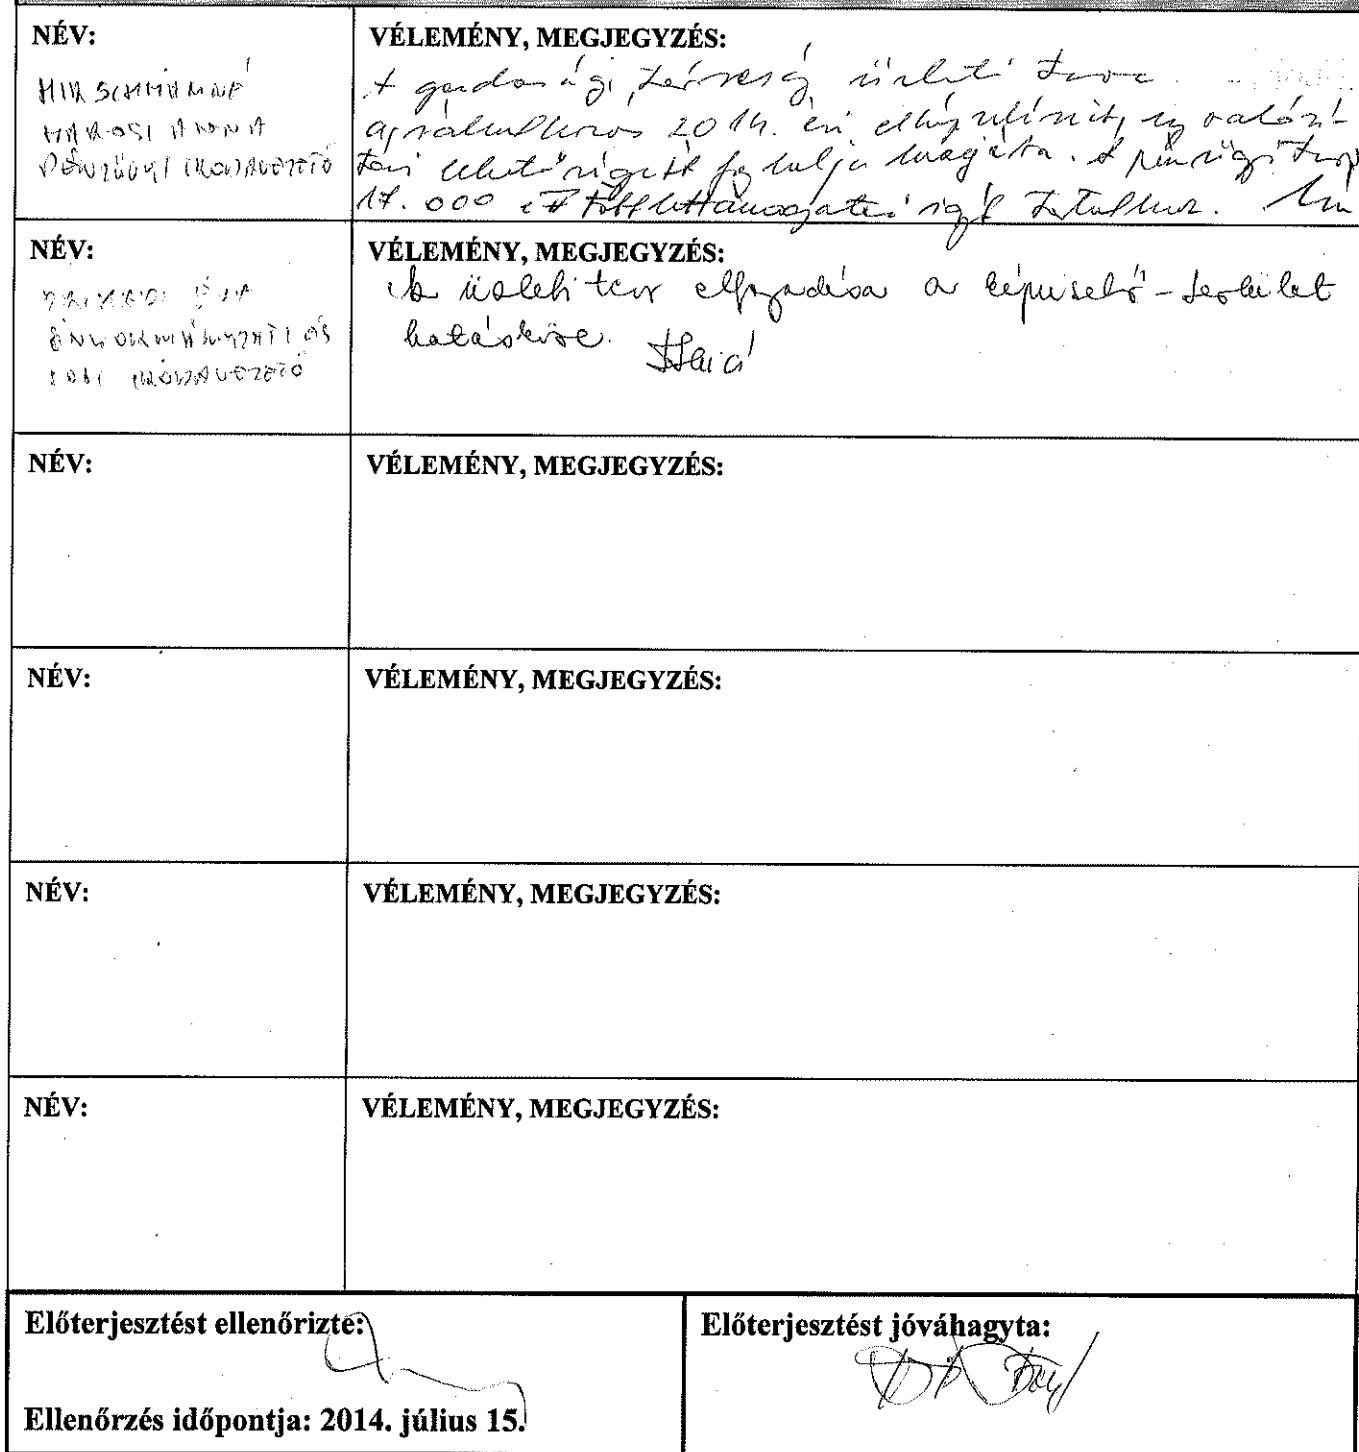 NÉV:
HIRSCHMANNÉ
MAROSI ANNA
PÉNZÜGYI IRODAVEZETŐ
VÉLEMÉNY, MEGJEGYZÉS:
A gazdasági társaság üzleti terve
2014. évi
lehetőségeit foglalja magába. A pénzügyi terv
17.000 eFt többlettámogatási igényt
NÉV:
ÉVA
ÖNKORMÁNYZATI ÉS
JOGI IRODAVEZETŐ
VÉLEMÉNY, MEGJEGYZÉS:
Az üzleti terv elfogadása a képviselő-testület
hatásköre.
NÉV:
VÉLEMÉNY, MEGJEGYZÉS:
NÉV:
VÉLEMÉNY, MEGJEGYZÉS:
NÉV:
VÉLEMÉNY, MEGJEGYZÉS:
NÉV:
VÉLEMÉNY, MEGJEGYZÉS:
Előterjesztést ellenőrizte:
Ellenőrzés időpontja: 2014. július 15.
Előterjesztést jóváhagyta: